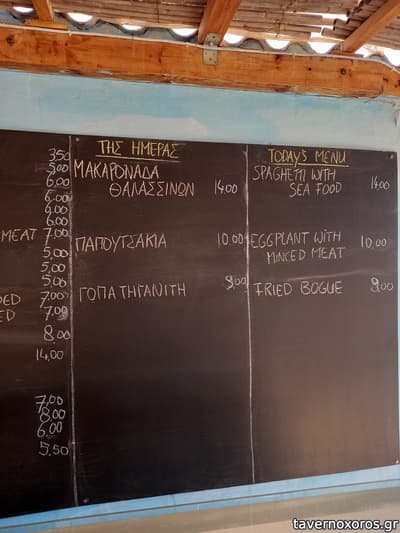 350
5,00
6,00
6,00
6,00
6,00
MEAT 7,00
5,00
5,00
5,00
7,00
7,00
8,00
14,00
7,00
8,00
6,00
5,50
ΤΗΣ ΗΜΕΡΑΣ
ΜΑΚΑΡΟΝΑΔΑ
ΘΑΛΑΣΣΙΝΩΝ 14,00
ΠΑΠΟΥΤΣΑΚΙΑ 10,00
ΓΟΠΑ ΤΗΓΑΝΙΤΗ 9,00
TODAY'S MENU
SPAGHETTI WITH
SEA FOOD 14,00
EGGPLANT WITH
MINCED MEAT 10,00
FRIED BOGUE 9,00
tavernoxoros.gr